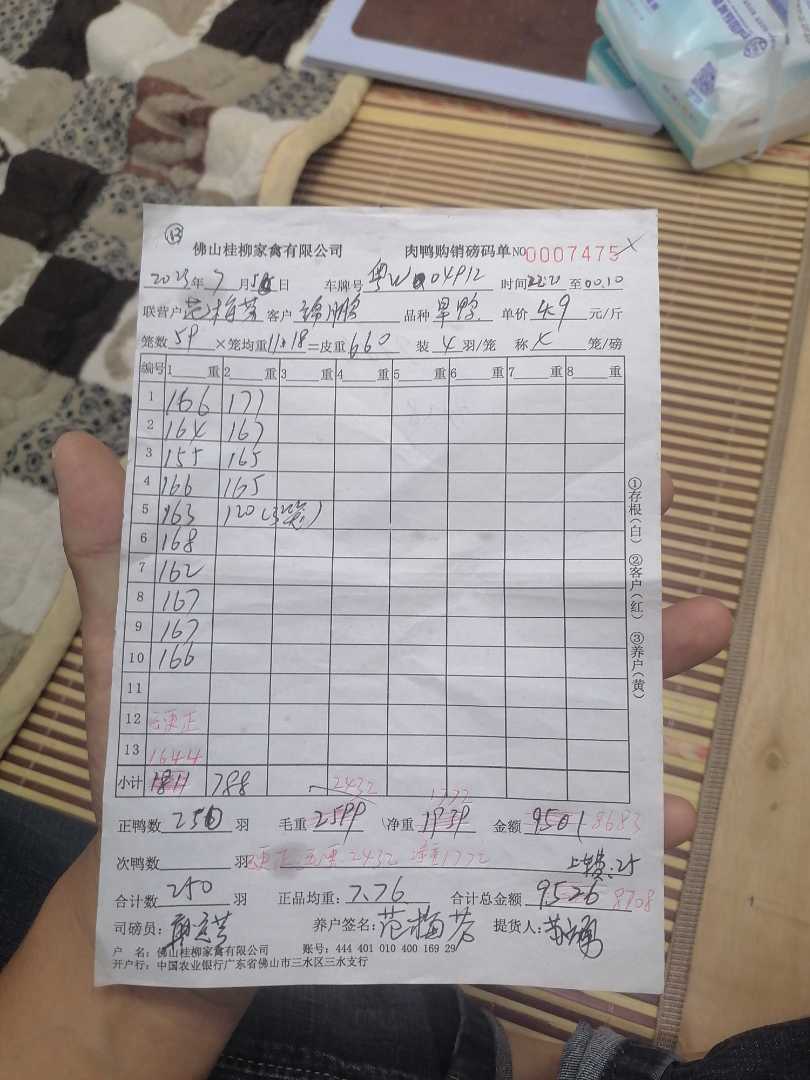 ⑬
佛山桂柳家禽有限公司 肉鸭购销磅码单 NO 0007475 ×
2023年 7月5日 车牌号 粤W 04912 时间 22:20 至 00:10
联营户 范梅芳 客户 锦鹏 品种 单价 4.9 元/斤
笼数 59 ×笼均重 11.18 =皮重 660 装 4 羽/笼 称 笼/磅
编号 1 重 2 重 3 重 4 重 5 重 6 重 7 重 8 重
1 166 171
2 164 167
3 155 165
4 166 165
5 163 120 (3笼)
6 168
7 162
8 167
9 167
10 166
11
12 更正
13 1644
小计 1811 788 2432
1772
正鸭数 250 羽 毛重 2599 净重 1939 金额 9501 8683
次鸭数 羽 更正 毛重 2432 净重 1772 上车费:25
合计数 250 羽 正品均重: 7.76 合计总金额 9526 8708
司磅员: 养户签名: 范梅芳 提货人:
户 名: 佛山桂柳家禽有限公司 账号: 444 401 010 400 169 29
开户行: 中国农业银行广东省佛山市三水区三水支行
①存根(白) ②客户(红) ③养户(黄)